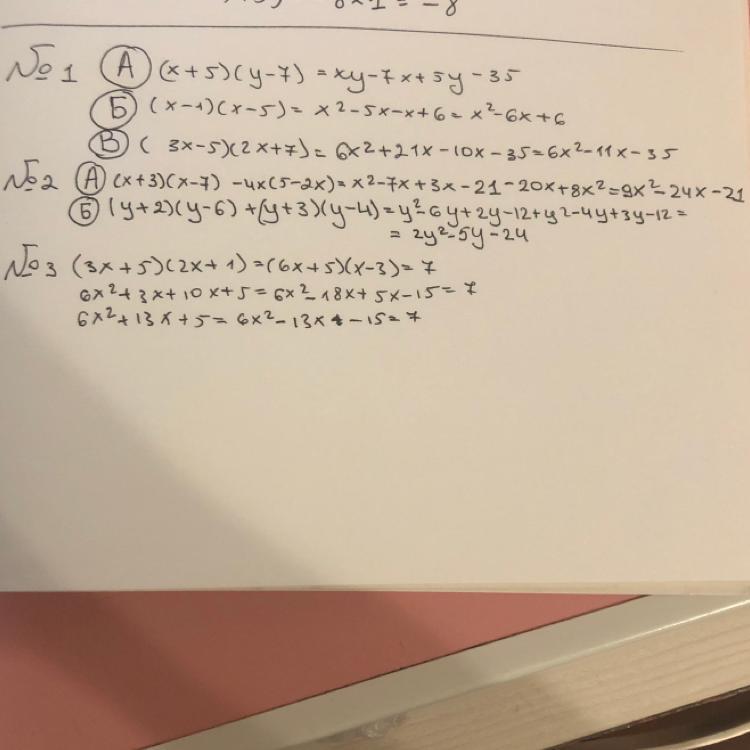 8x1 = -8
№1 А (x+5)(y-7) = xy-7x+5y-35
Б (x-1)(x-5) = x²-5x-x+6 = x²-6x+6
В ( 3x-5)(2x+7) = 6x²+21x-10x-35=6x²-11x-35
№2 А (x+3)(x-7) -4x(5-2x)=x²-7x+3x-21-20x+8x²=9x²-24x-21
Б (y+2)(y-6) +(y+3)(y-4)=y²-6y+2y-12+y²-4y+3y-12=
= 2y²-5y-24
№3 (3x+5)(2x+1)=(6x+5)(x-3)=7
6x²+3x+10x+5=6x²-18x+5x-15=7
6x²+13x+5=6x²-13x -15=7